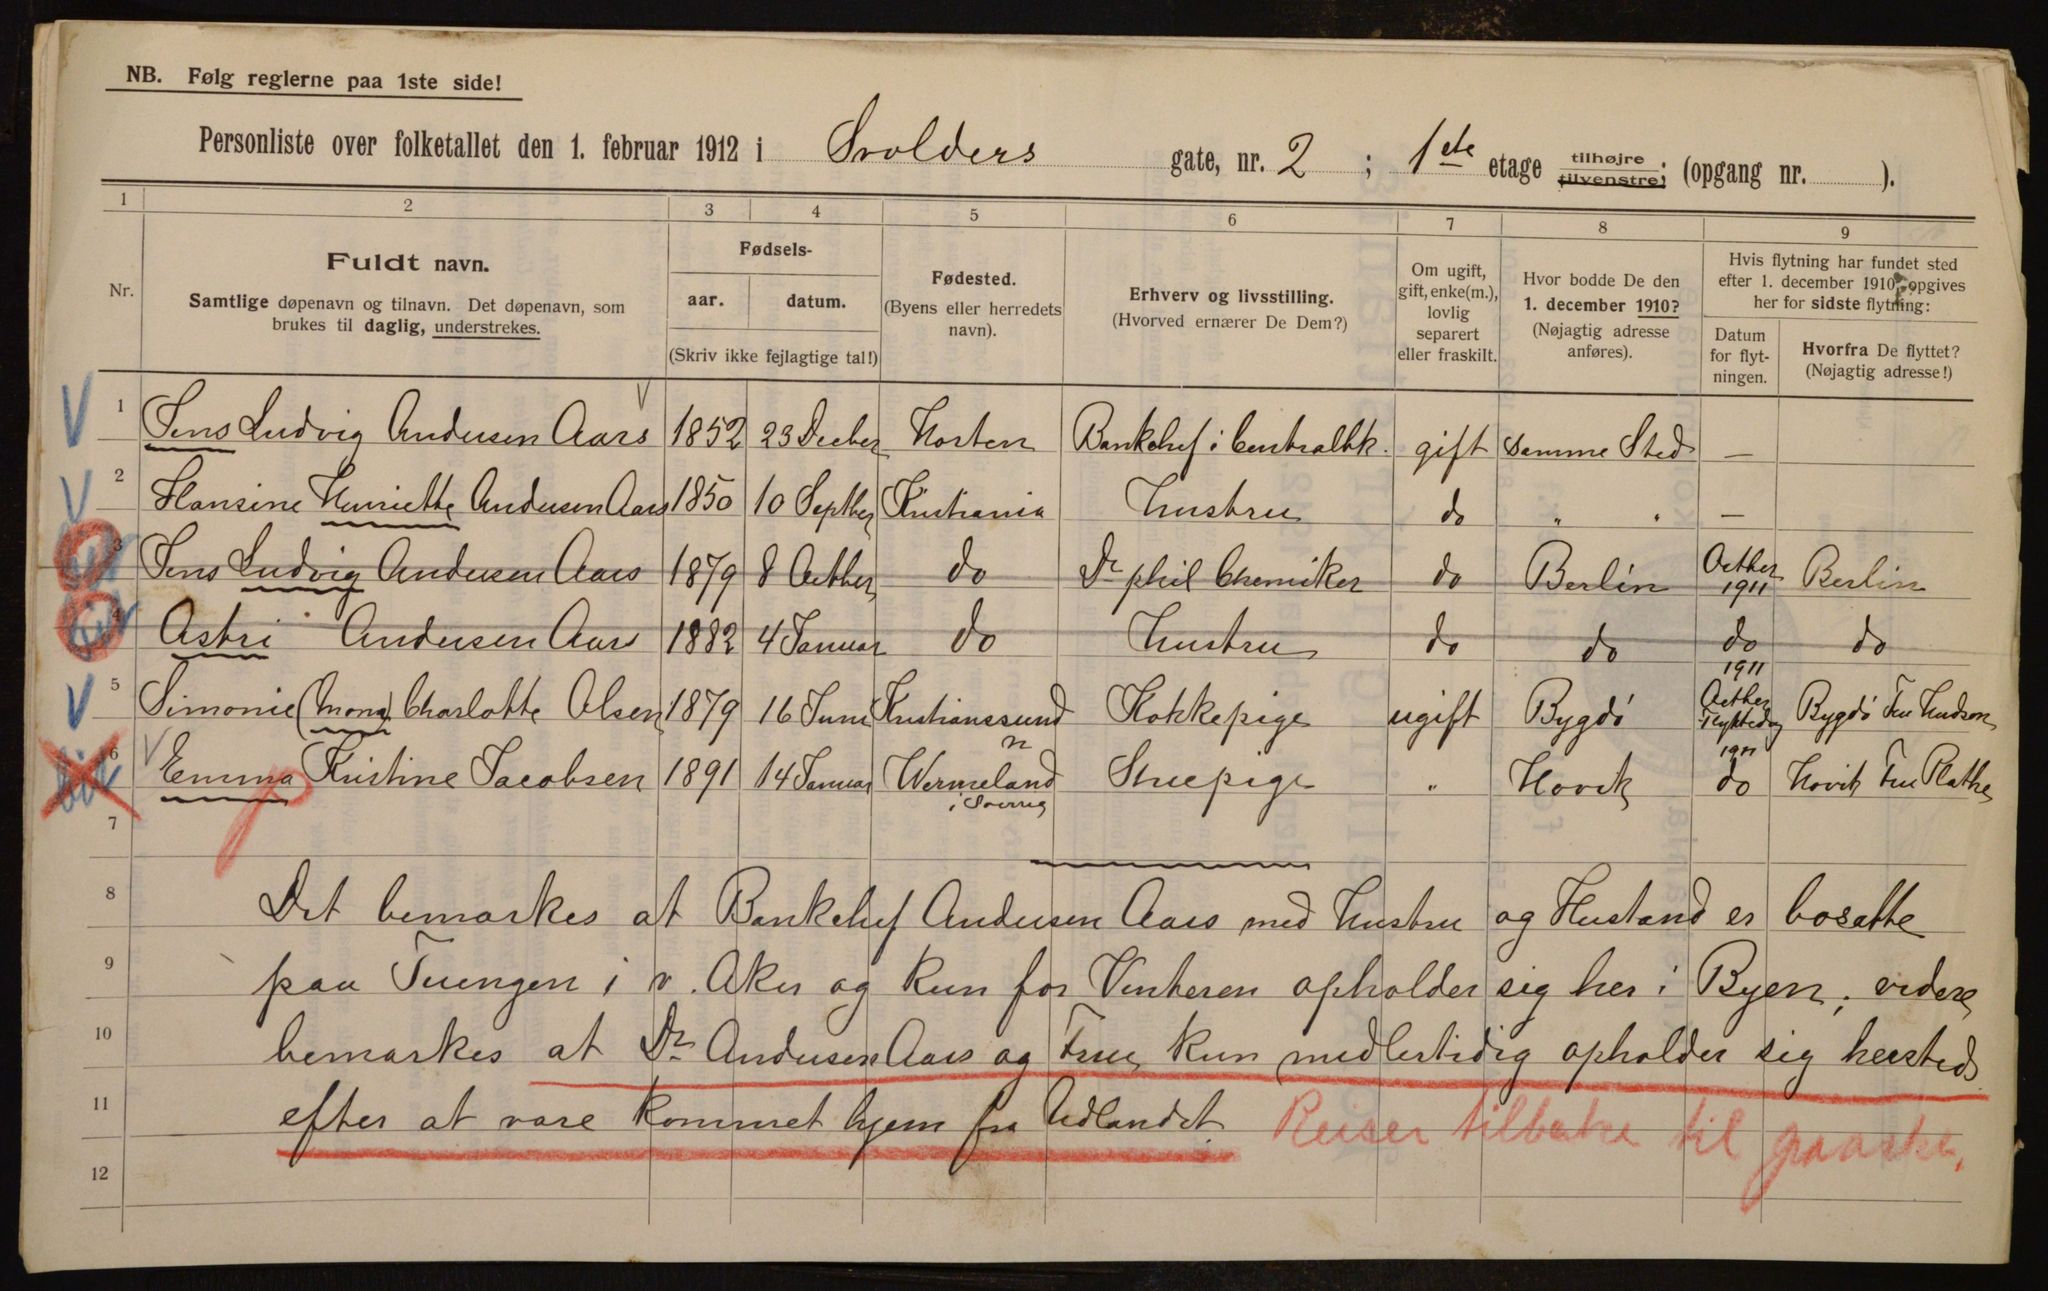 NB. Følg reglerne paa 1ste side!
Personliste over folketallet den 1. februar 1912 i Svolders gate, nr. 2 ; 1ste etage tilhøjre tilvenstre; (opgang nr. ).
1 2 3 4 5 6 7 8 9
Nr.
Fuldt navn.
Samtlige døpenavn og tilnavn. Det døpenavn, som
brukes til daglig, understrekes.
Fødsels-
aar. datum.
(Skriv ikke fejlagtige tal!)
Fødested.
(Byens eller herredets
navn).
Erhverv og livsstilling.
(Hvorved ernærer De Dem?)
Om ugift,
gift, enke(m.),
lovlig
separert
eller fraskilt.
Hvor bodde De den
1. december 1910?
(Nøjagtig adresse
anføres).
Hvis flytning har fundet sted
efter 1. december 1910, opgives
her for sidste flytning:
Datum
for flyt-
ningen.
Hvorfra De flyttet?
(Nøjagtig adresse!)
1 Jens Ludvig Andersen Aars 1852 23 Decber Horten Bankchef i Centralbk. gift samme Sted —
2 Hansine Henriette Andersen Aars 1850 10 Septber Kristiania Hustru do " " —
3 Jens Ludvig Andersen Aars 1879 8 Octber do Dr phil Chemiker do Berlin Octber 1911 Berlin
4 Astri Andersen Aars 1882 4 Januar do Hustru do do do do
5 Simonie (Mona) Charlotte Olsen 1879 16 Juni Kristianssund n Kokkepige ugift Bygdö 1911 Octber Flyttedag Bygdö Fru Hudson
6 Emma Kristine Jacobsen 1891 14 Januar Wermeland i Sverrig Stuepige " Hovik 1911 do Hovik Fru Plathe
7
8 Det bemærkes at Bankchef Andersen Aars med Hustru og Husstand er bosatte
9 paa Tuengen i v. Aker og kun for Vinteren opholder sig her i Byen; videre
10 bemærkes at Dr Andersen Aars og Frue kun midlertidig opholder sig hersteds
11 efter at være kommet hjem fra Udlandet. Reiser tilbake til paaske.
12